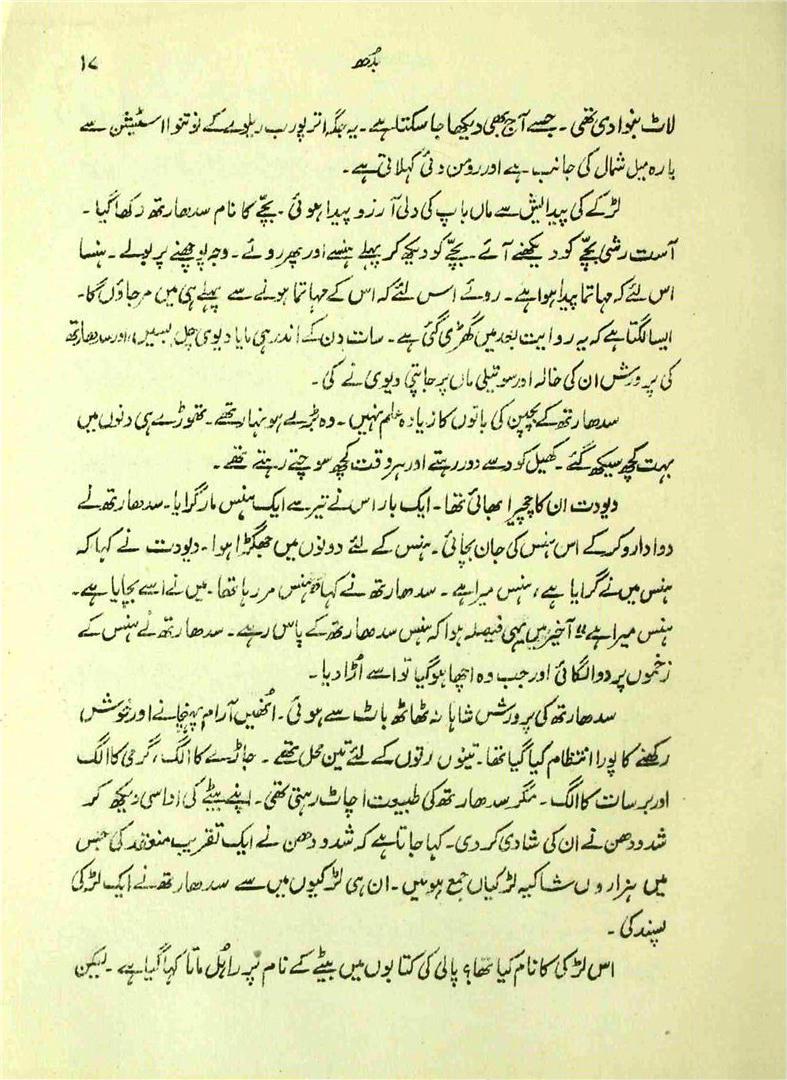 بُدھ ۱۷
لاٹ بنوا دی تھی ۔ جسے آج بھی دیکھا جا سکتا ہے ۔ یہ جگہ اتر پورب ریلوے کے نوتنوا اسٹیشن سے
بارہ میل شمال کی جانب ہے اور رومن دئی کہلاتی ہے ۔
لڑکے کی پیدایش سے ماں باپ کی دلی آرزو پیدا ہوئی ۔ بچّے کا نام سدھارتھ رکھا گیا ۔
آست رشی بچّے کو دیکھنے آئے ۔ بچّے کو دیکھ کر پہلے ہنسے اور پھر روئے ۔ وجہ پوچھنے پر بولے ۔ ہنسا
اس لئے کہ مہاتما پیدا ہوا ہے ۔ روئے اس لئے کہ اس کے مہاتما ہونے سے پہلے ہی میں مر جاؤں گا ۔
ایسا لگتا ہے کہ یہ روایت بعد میں گھڑی گئی ہے ۔ سات دن کے اندر ہی مایا دیوی چل بسیں ، اور سدھارتھ
کی پرورش ان کی خالہ اور سوتیلی ماں پرجاپتی دیوی نے کی ۔
سدھارتھ کے بچپن کی باتوں کا زیادہ علم نہیں ۔ وہ بڑے ہونہار تھے ۔ تھوڑے ہی دنوں میں
بہت کچھ سیکھ گئے ۔ کھیل کود سے دور رہتے اور ہر وقت کچھ سوچتے رہتے تھے ۔
دیودت ان کا چچیرا بھائی تھا ۔ ایک بار اس نے تیر سے ایک ہنس مار گرایا ۔ سدھارتھ نے
دوا دارو کر کے اس ہنس کی جان بچائی ۔ ہنس کے لئے دونوں میں جھگڑا ہوا ۔ دیودت نے کہا کہ
ہنس میں نے گرایا ہے ، ہنس میرا ہے ۔ سدھارتھ نے کہا " ہنس مر رہا تھا ۔ میں نے اسے بچایا ہے ۔
ہنس میرا ہے " آخیر میں یہی فیصلہ ہوا کہ ہنس سدھارتھ کے پاس رہے ۔ سدھارتھ نے ہنس کے
زخموں پر دوا لگائی اور جب وہ اچھا ہو گیا تو اسے اُڑا دیا ۔
سدھارتھ کی پرورش شاہانہ ٹھاٹھ باٹ سے ہوئی ۔ اُنھیں آرام پہنچانے اور خوش
رکھنے کا پورا انتظام کیا گیا تھا ۔ تینوں رتوں کے لئے تین محل تھے ۔ جاڑے کا الگ ، گرمی کا الگ
اور برسات کا الگ ۔ مگر سدھارتھ کی طبیعت اچاٹ رہتی تھی ۔ اپنے بیٹے کی اداسی دیکھ کر
شدودھن نے ان کی شادی کر دی ۔ کہا جاتا ہے کہ شدودھن نے ایک تقریب منعقد کی جس
میں ہزاروں شاکیہ لڑکیاں جمع ہوئیں ۔ ان ہی لڑکیوں میں سے سدھارتھ نے ایک لڑکی
پسند کی ۔
اس لڑکی کا نام کیا تھا ؟ پالی کی کتابوں میں بیٹے کے نام پر راہُل ماتا کہا گیا ہے ۔ لیکن